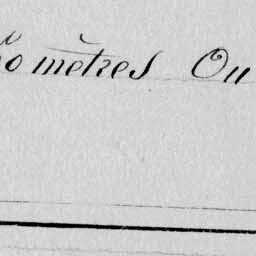 mètres Ou